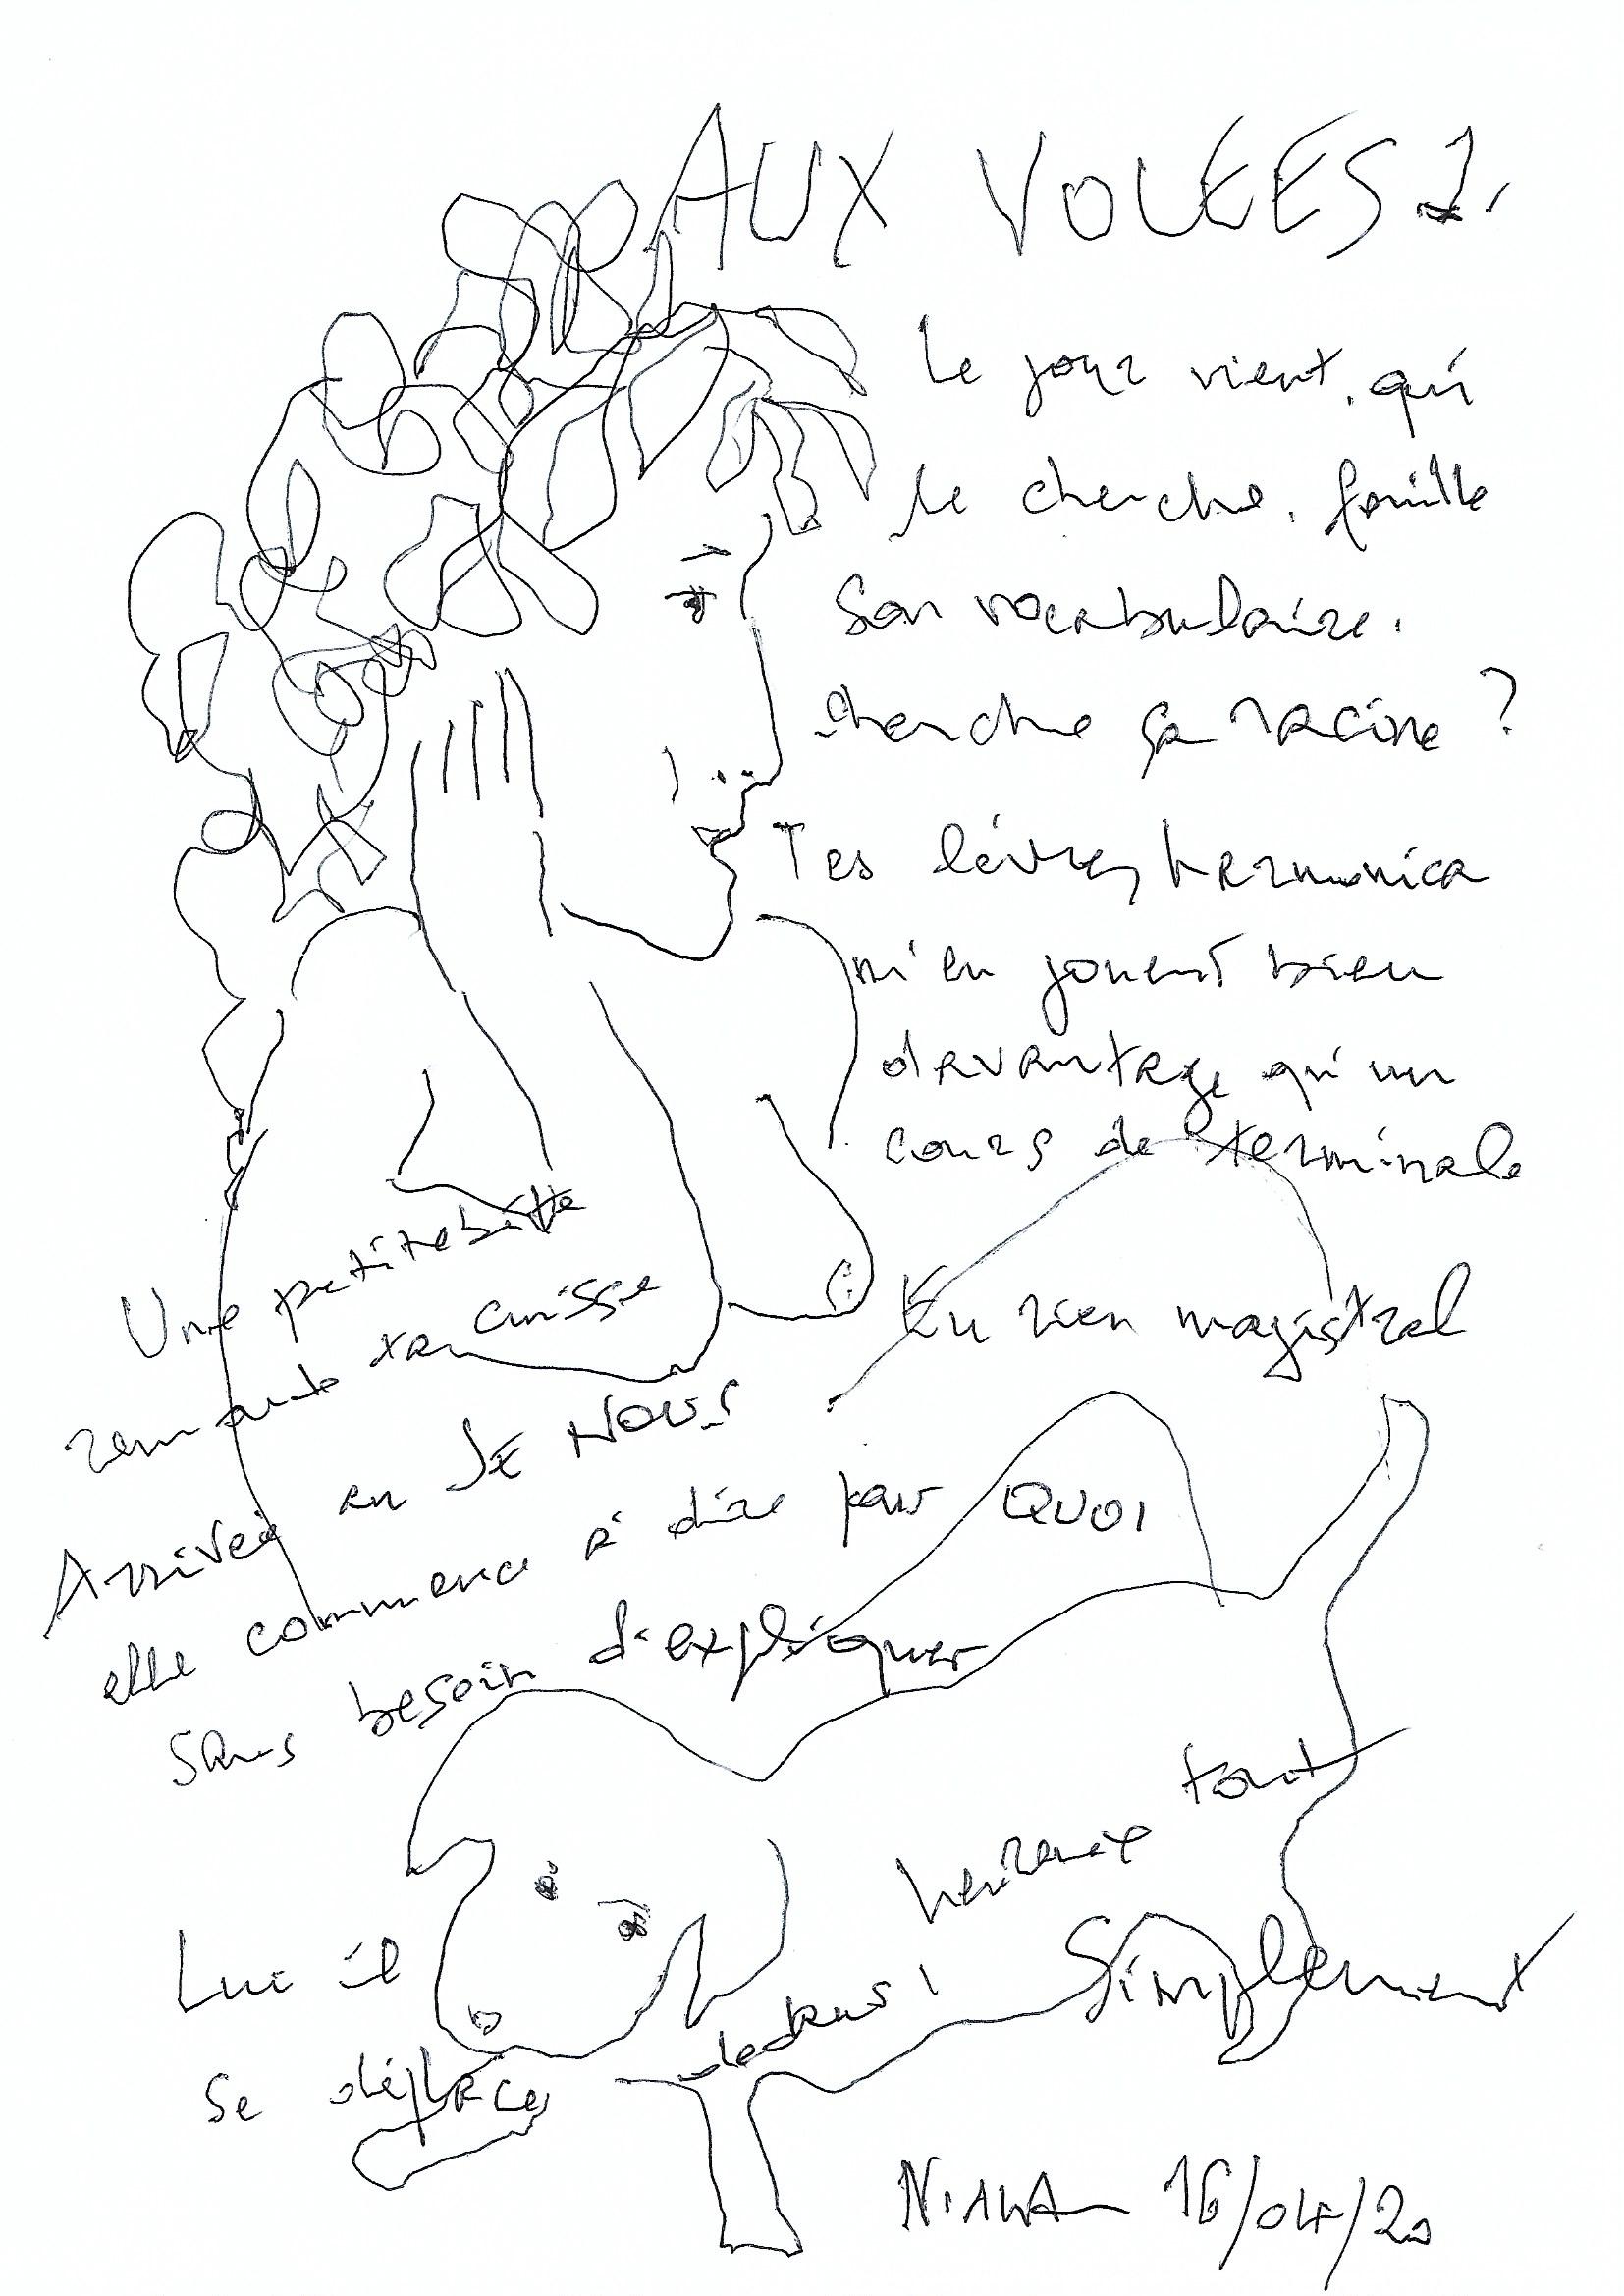 AUX VOLÉES 2.
Le jour vient, qui
le cherche, fouille
son vocabulaire.
cherche sa racine ?
Tes lèvres harmonica
m'en jouent bien
davantage qu'un
cours de terminale
En rien magistral
Une petite bête
remonte ta cuisse
Arrivée en JE NOUS
elle commence à dire par QUOI
sans besoin d'expliquer
Lui il
se déplace
dedans !
heureux tout
Simplement
16/04/20